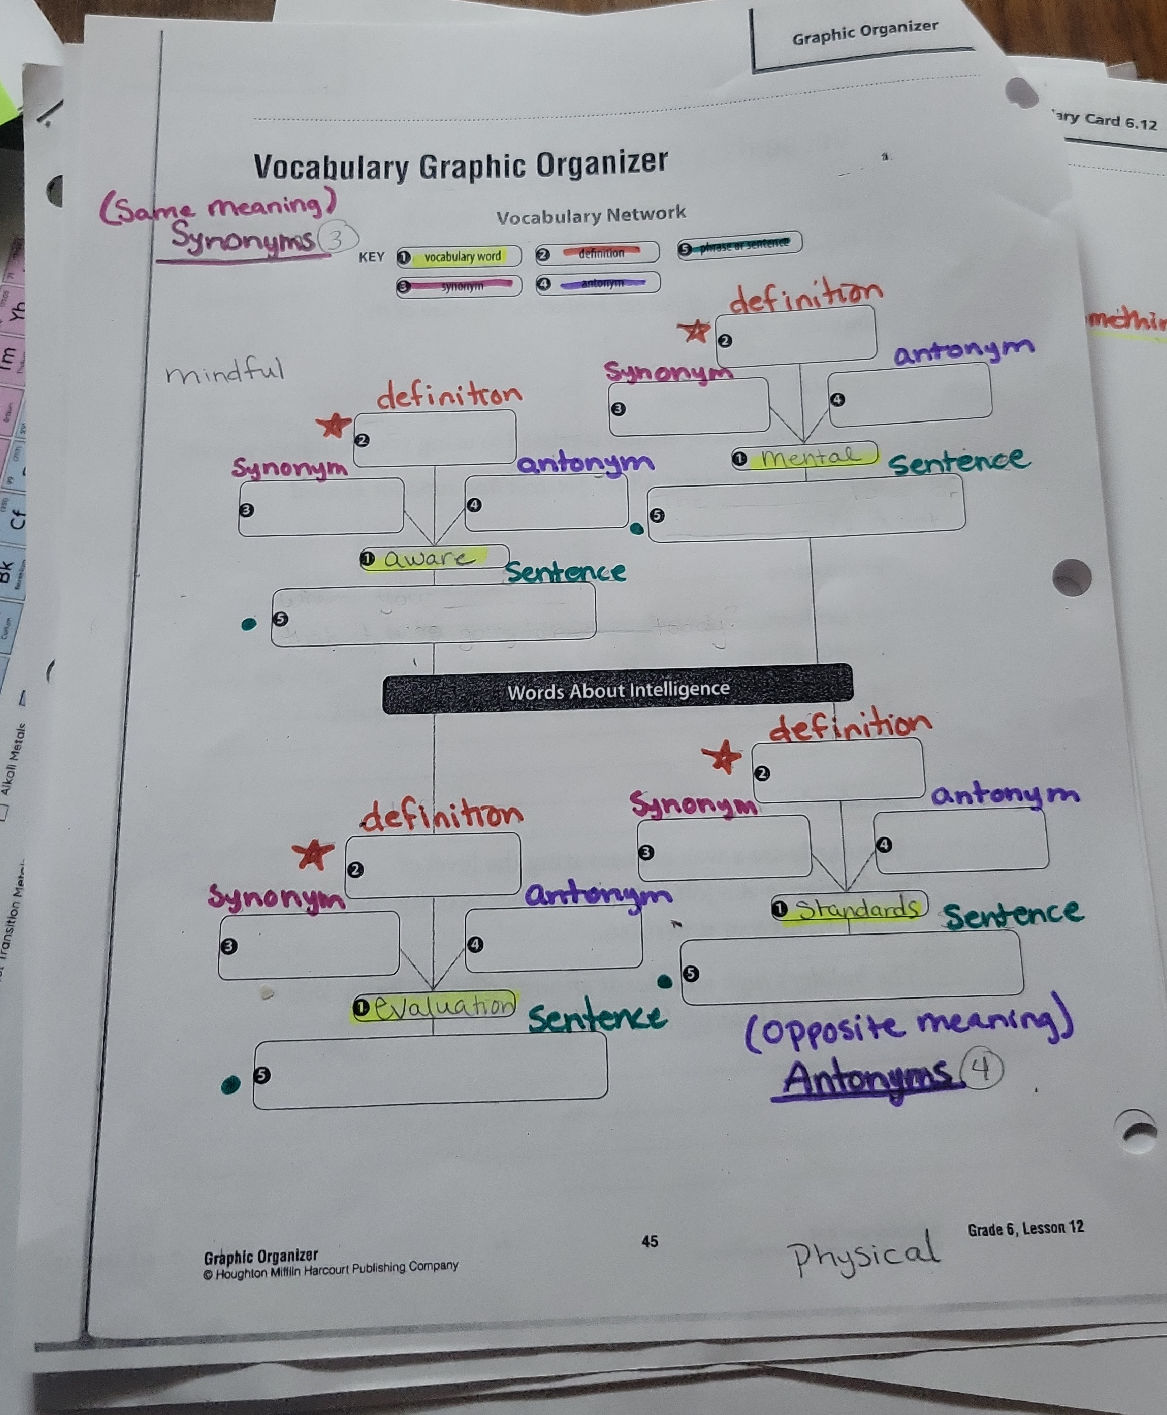 Graphic Organizer
ary Card 6.12
Vocabulary Graphic Organizer
(Same meaning)
Synonyms 3
Vocabulary Network
KEY 1 vocabulary word 2 definition 5 phrase or sentence
3 synonym 4 antonym
mindful
definition
2
synonym
3
antonym
4
1 aware
Sentence
5
definition
2
Synonym
3
antonym
4
1 Mental
Sentence
5
Words About Intelligence
definition
2
Synonym
3
antonym
4
1 evaluation
Sentence
5
definition
2
Synonym
3
antonym
4
1 Standards
Sentence
5
(opposite meaning)
Antonyms 4
Graphic Organizer
© Houghton Mifflin Harcourt Publishing Company
45
Grade 6, Lesson 12
Physical
Yb
Tm
Cf
Bk
Alkali Metals